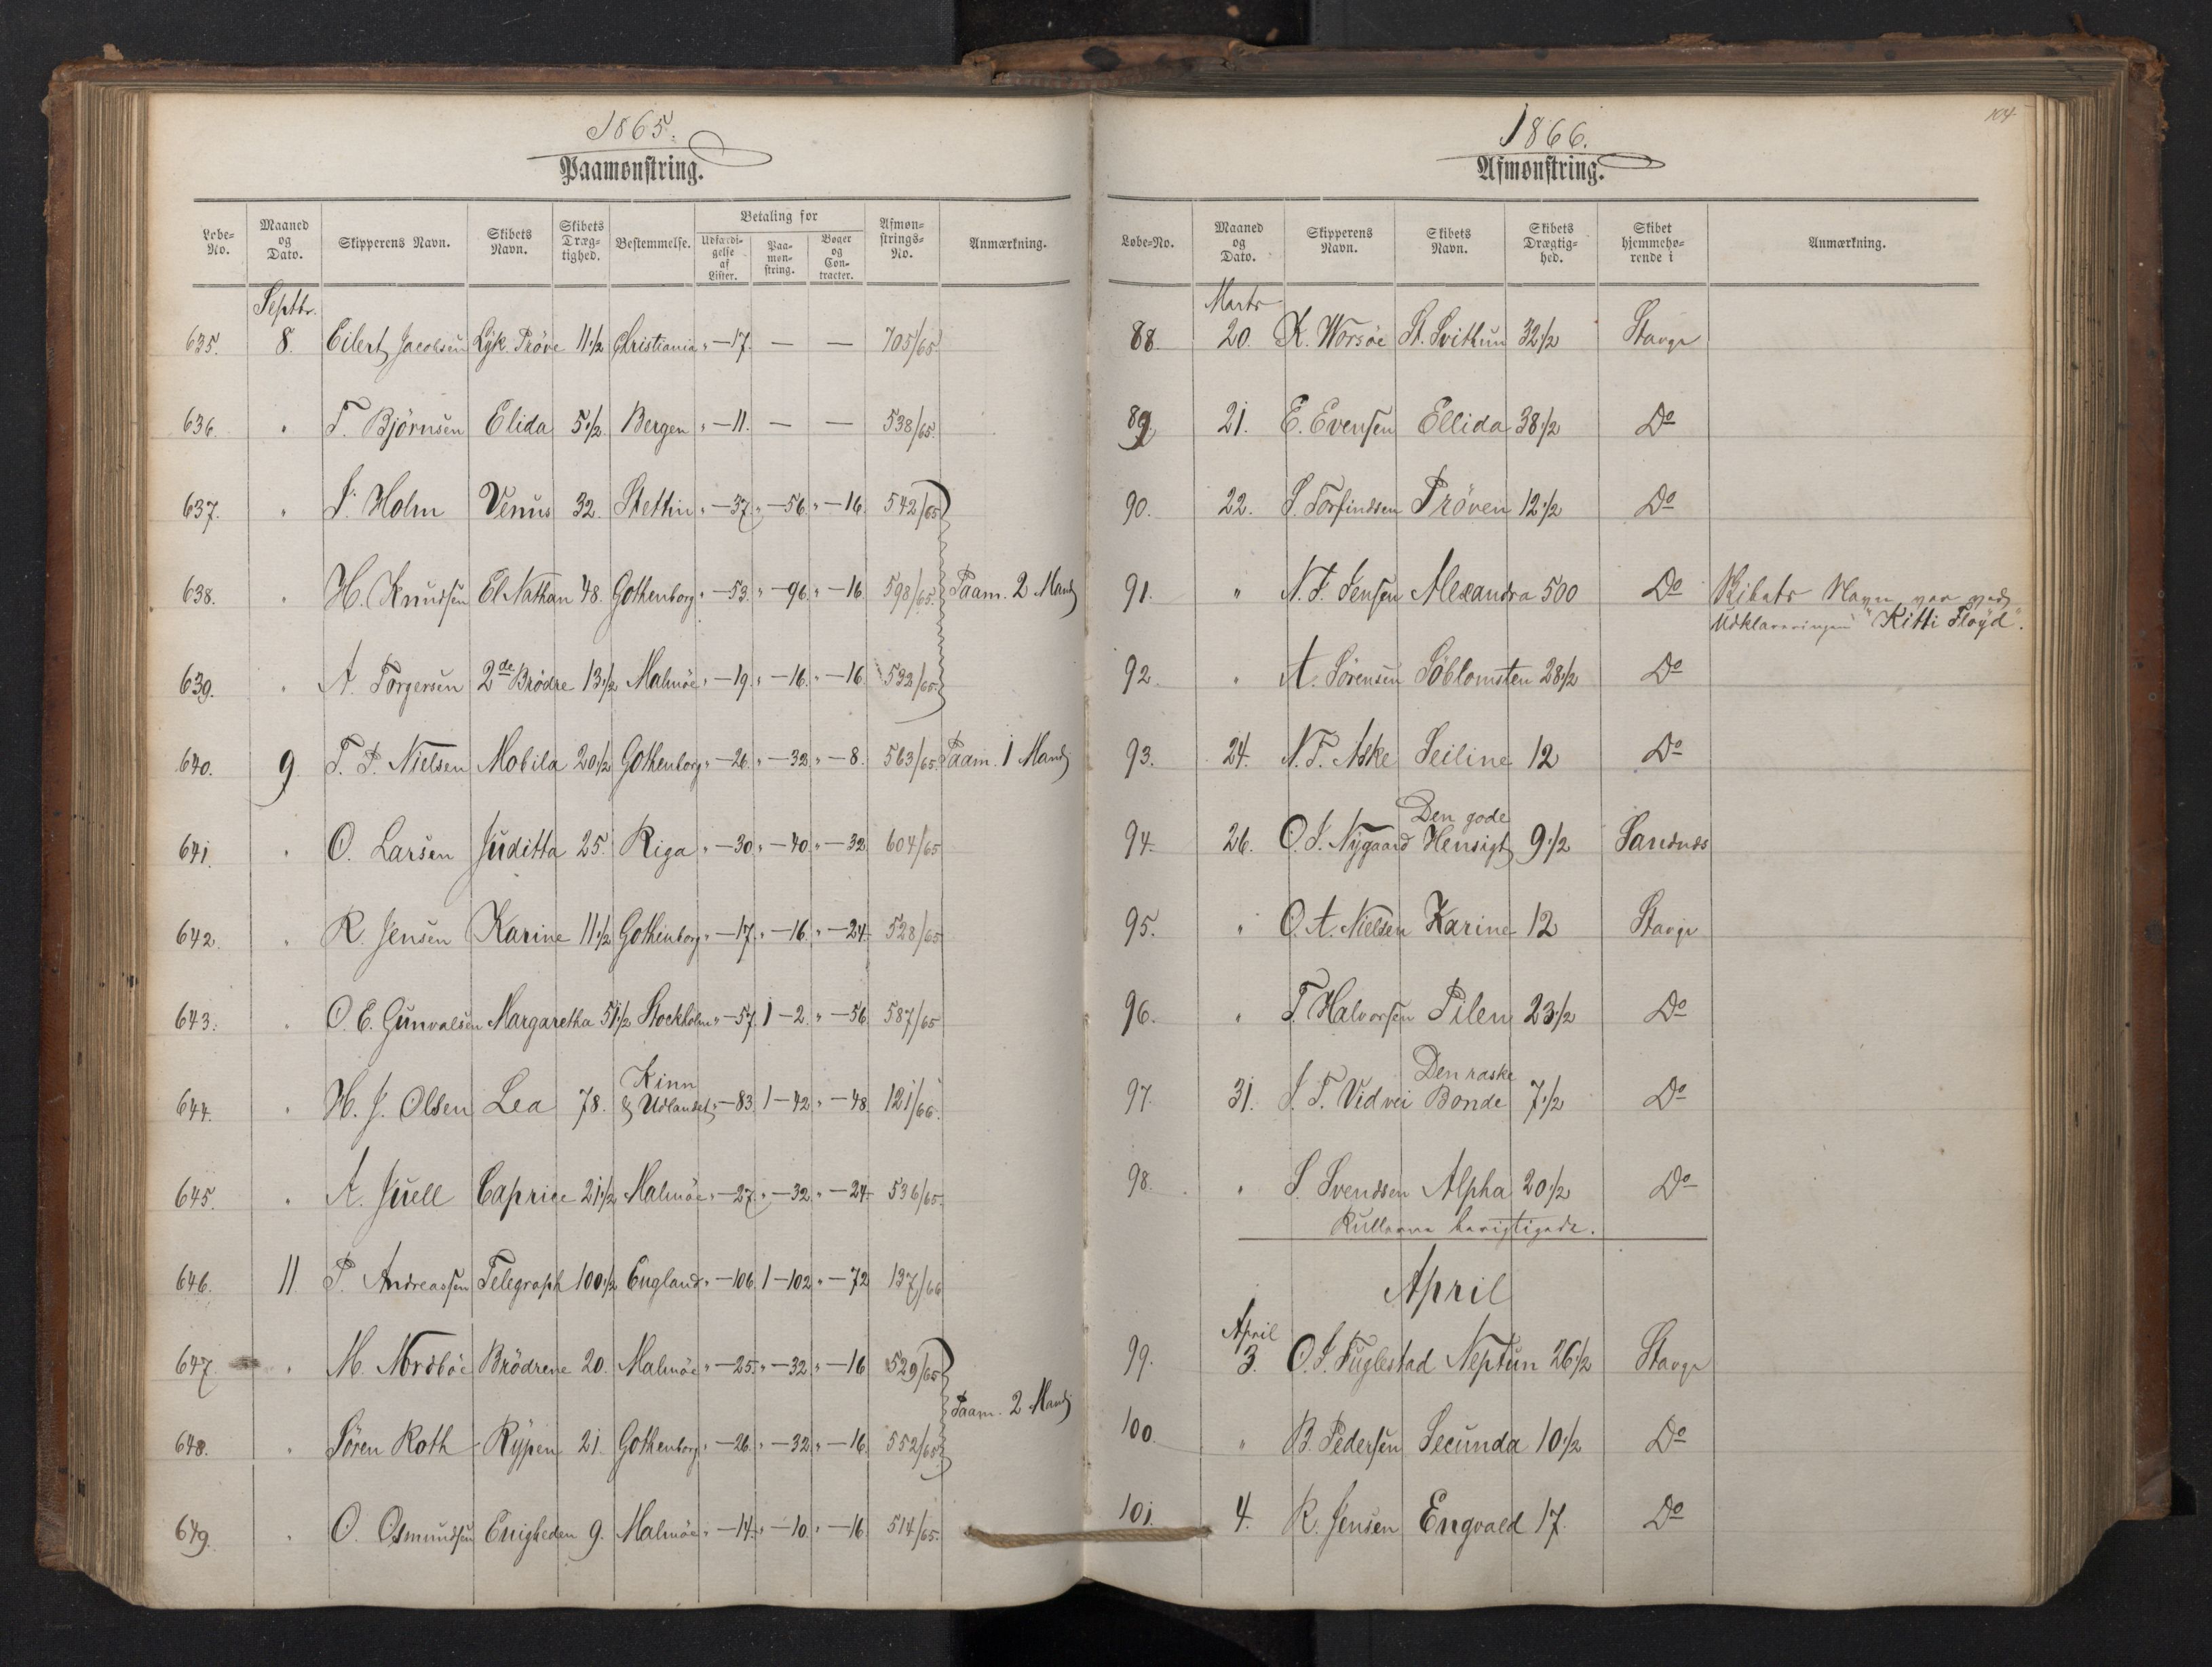 1865.
Paamønstring.
Løbe-No. Maaned og Dato. Skipperens Navn. Skibets Navn. Skibets Dræg-tighed. Bestemmelse. Betaling for Udfærdi-gelse af Lister. Paa-møn-string. Bøger og Con-tracter. Afmøn-strings-No. Anmærkning.
Septbr.
635. 8. Eilert Jacobsen Lyk. Pröve 11 1/2 Christiania " — 17. — — 705/65.
636. " T. Björnsen Elida 5 1/2 Bergen " — 11. — — 538/65.
637. " S. Holm Venus 32. Stettin " — 37. " — 56. " — 16. 542/65
638. " H. Knudsen El Nathan 48. Gothenborg " — 53. " — 96. " — 16. 598/65. Paam. 2 Mand
639. " A. Torgersen 2de Brödre 13 1/2 Malmöe " — 19. " — 16. " — 16. 532/65.
640. 9. T. P. Nielsen Mobila 20 1/2 Gothenborg " — 26. " — 32 " — 8. 563/65. Paam. 1 Mand
641. " O. Larsen Juditta 25. Riga " — 30. " — 40. " — 32 604/65
642. " R. Jensen Karine 11 1/2 Gothenborg " — 17. " — 16. " — 24. 528/65
643. " O. E. Gunvalsen Margaretha 51 1/2 Stockholm " — 57. 1 — 2. " — 56. 587/65
644. " H. J. Olsen Lea 78. Kinn & Udlandet " — 83. 1 — 42. " — 48. 121/66.
645. " A. Juell Caprice 21 1/2 Malmöe " — 27. " — 32. " — 24. 536/65.
646. 11. P. Andreassen Telegraph 100 1/2 England " — 106. 1 — 102. " — 72 137/66
647. " M. Nordböe Brödrene 20. Malmöe " — 25. " — 32. " — 16 529/65
Paam. 2 Mand
648. " Sören Roth Rypen 21. Gothenborg " — 26. " — 32. " — 16. 552/65.
649. " O. Osmundsen Enigheden 9. Malmöe " — 14. " — 10. " — 16. 514/65.
104
1866.
Afmønstring.
Løbe-No. Maaned og Dato. Skipperens Navn. Skibets Navn. Skibets Drægtig-hed. Skibet hjemmehø-rende i Anmærkning.
Marts
88. 20. K. Worsöe St. Svithun 32 1/2 Stavgr
89. 21. E. Evensen Ellida 38 1/2 Do
90. 22. S. Torfindsen Pröven 12 1/2 Do
91. " N. J. Jensen Alexandra 500 Do Skibets Navn var ved
Udklareringen "Kitti Floyd".
92. " A. Sörensen Söblomsten 28 1/2 Do
93. 24. N. T. Aske Seiline 12 Do
94. 26. O. J. Nygaard Den gode Hensigt 9 1/2 Sandnæs
95. " O. A. Nielsen Karine 12 Stavgr
96. " T. Halvorsen Pilen 23 1/2 Do
97. 31. J. T. Vidvei Den raske Bonde 7 1/2 Do
98. " S. Svendsen Alpha 20 1/2 Do
Rullerne berigtigede.
April
April
99. 3. O. J. Fuglestad Neptun 26 1/2 Stavgr
100. " B. Pedersen Secunda 10 1/2 Do
101. 4. R. Jensen Engvald 17. Do